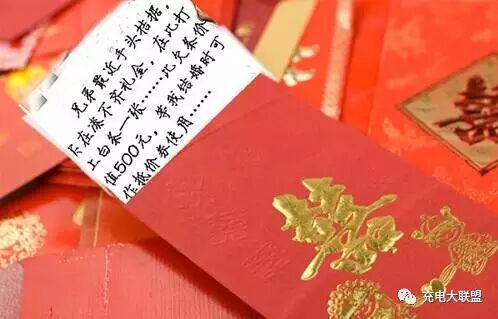 兄弟最近手头拮据，
卡在凑不齐礼金，在此打
上白条一张……此欠条价
值500元，等我结婚时可
作抵价券使用……
囍
囍
充电大联盟